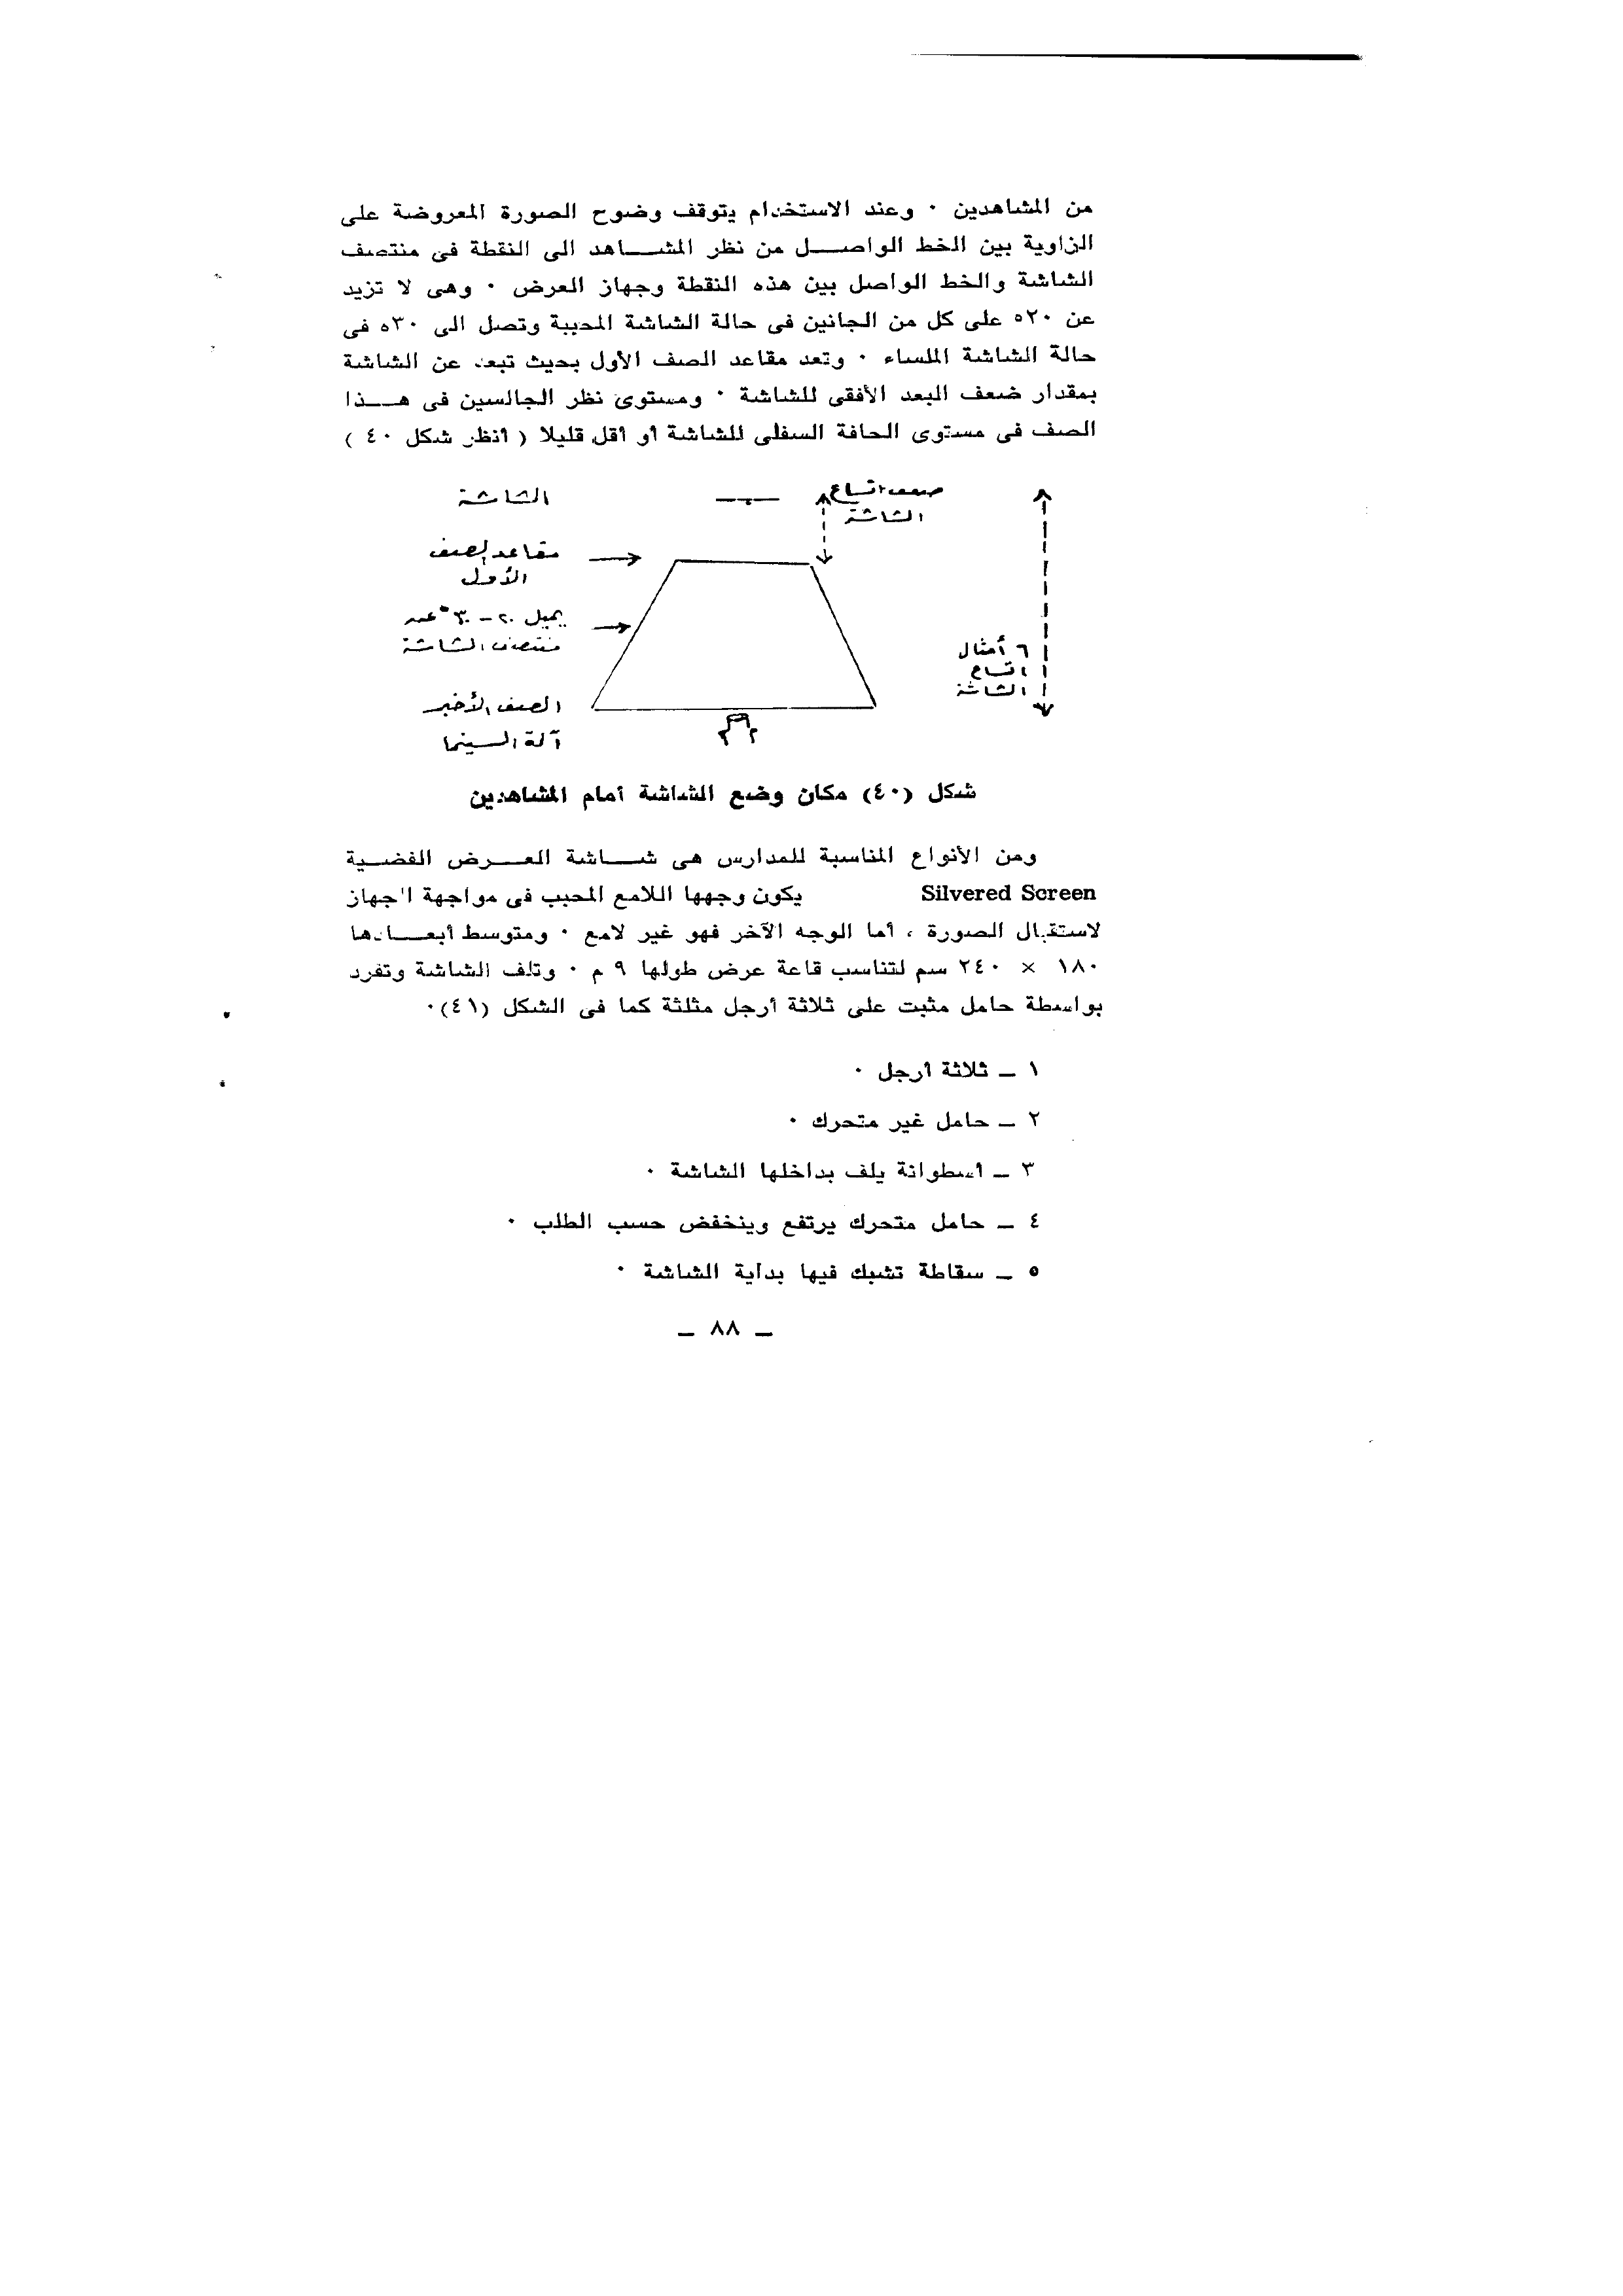 من المشاهدين ٠ وعند الاستخدام يتوقف وضوح الصورة المعروضة على
الزاوية بين الخط الواصل من نظر المشاهد الى النقطة فى منتصف
الشاشة والخط الواصل بين هذه النقطة وجهاز العرض ٠ وهى لا تزيد
عن ٢٠ْ على كل من الجانين فى حالة الشاشة المحببة وتصل الى ٣٠ْ فى
حالة الشاشة الملساء ٠ وتعد مقاعد الصف الأول بحيث تبعد عن الشاشة
بمقدار ضعف البعد الأفقى للشاشة ٠ ومستوى نظر الجالسين فى هذا
الصف فى مستوى الحافة السفلى للشاشة أو أقل قليلا ( أنظر شكل ٤٠ )
ضعف اتساع
الشاشة
الشاشة
مقاعد الصف
الأول
يميل ٢٠ – ٣٠° عند
منتصف الشاشة
٦ أمثال
اتساع
الشاشة
الصف الأخير
آلة السينما
شكل (٤٠) مكان وضع الشاشة أمام المشاهدين
ومن الأنواع المناسبة للمدارس هى شاشة العرض الفضية
Silvered Screen يكون وجهها اللامع المحبب فى مواجهة الجهاز
لاستقبال الصورة ، أما الوجه الآخر فهو غير لامع ٠ ومتوسط أبعادها
١٨٠ × ٢٤٠ سم لتناسب قاعة عرض طولها ٩ م ٠ وتلف الشاشة وتفرد
بواسطة حامل مثبت على ثلاثة أرجل مثلثة كما فى الشكل (٤١)٠
١ – ثلاثة أرجل ٠
٢ – حامل غير متحرك ٠
٣ – أسطوانة يلف بداخلها الشاشة ٠
٤ – حامل متحرك يرتفع وينخفض حسب الطلب ٠
٥ – سقاطة تشبك فيها بداية الشاشة ٠
– ٨٨ –